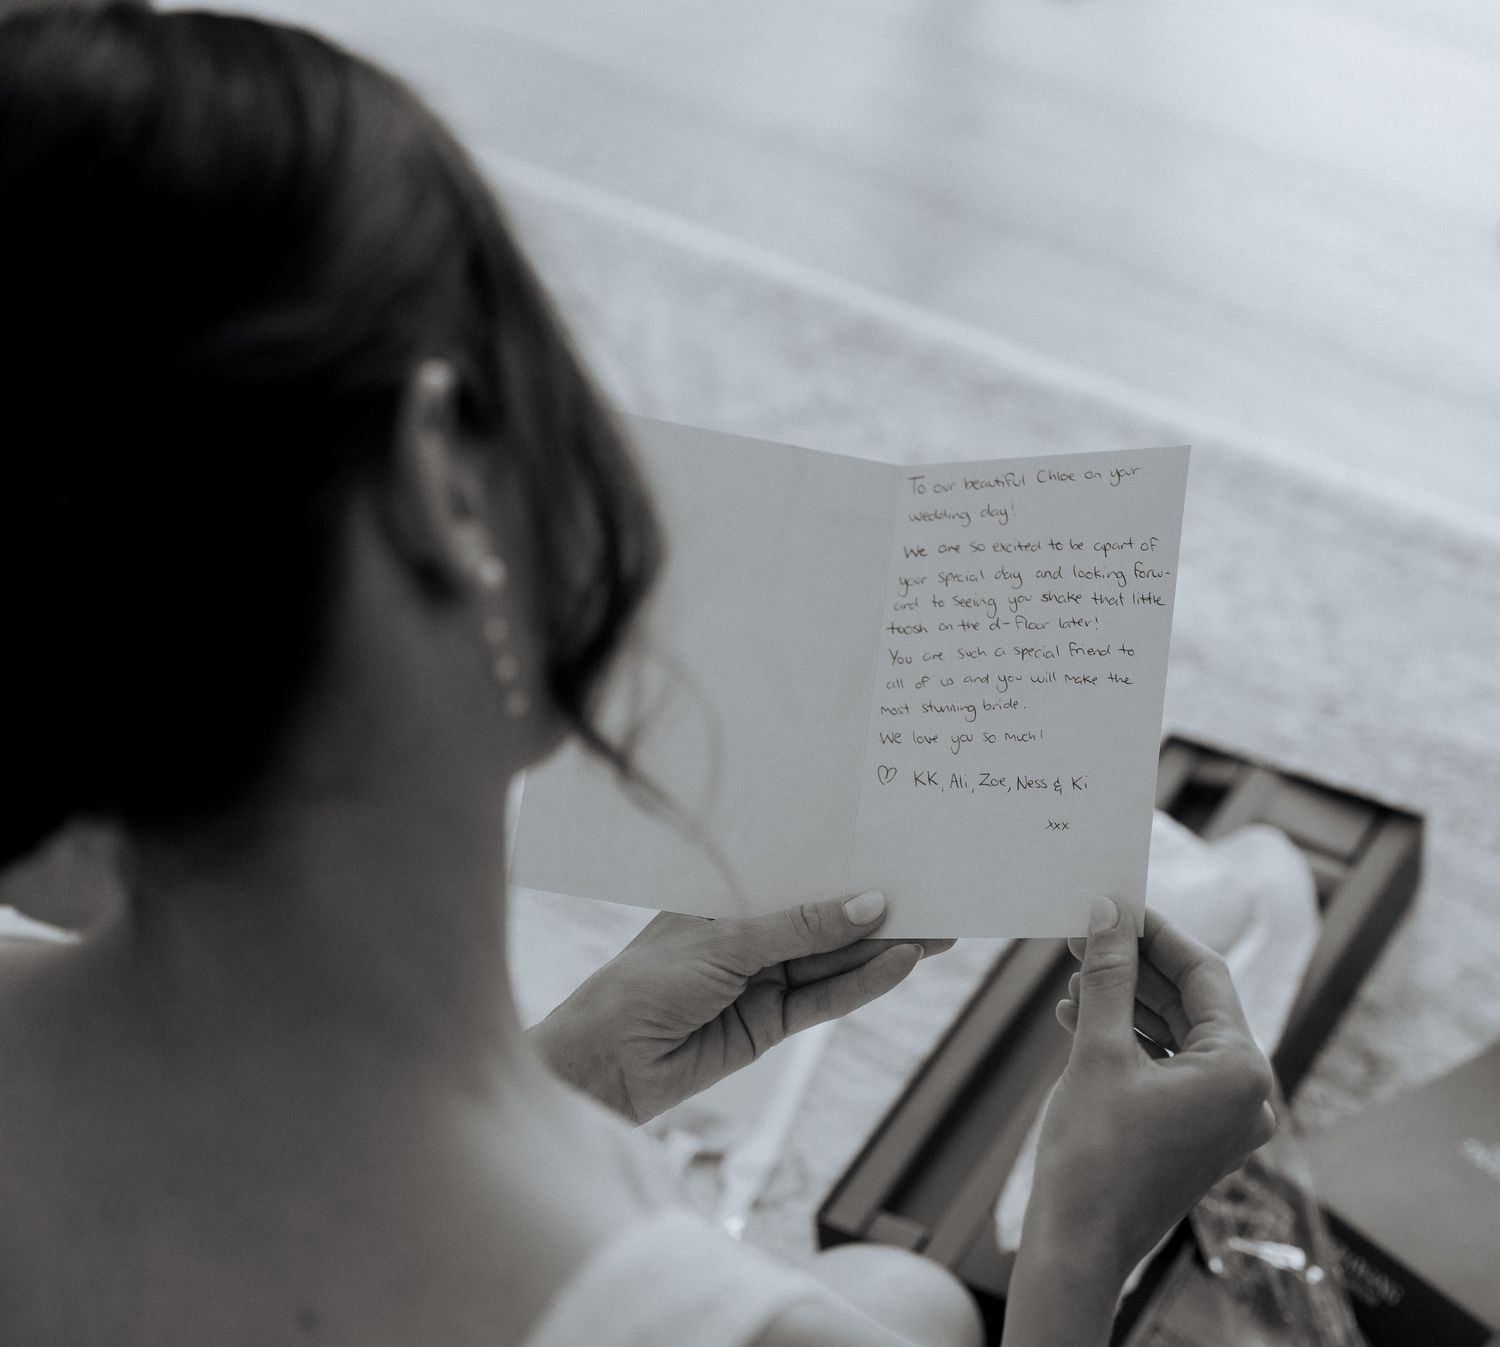 To our beautiful Chloe on your
wedding day!
We are so excited to be apart of
your special day and looking forw-
ard to seeing you shake that little
toosh on the d-floor later!
You are such a special friend to
all of us and you will make the
most stunning bride.
We love you so much!
♡ KK, Ali, Zoe, Ness & Ki
xxx